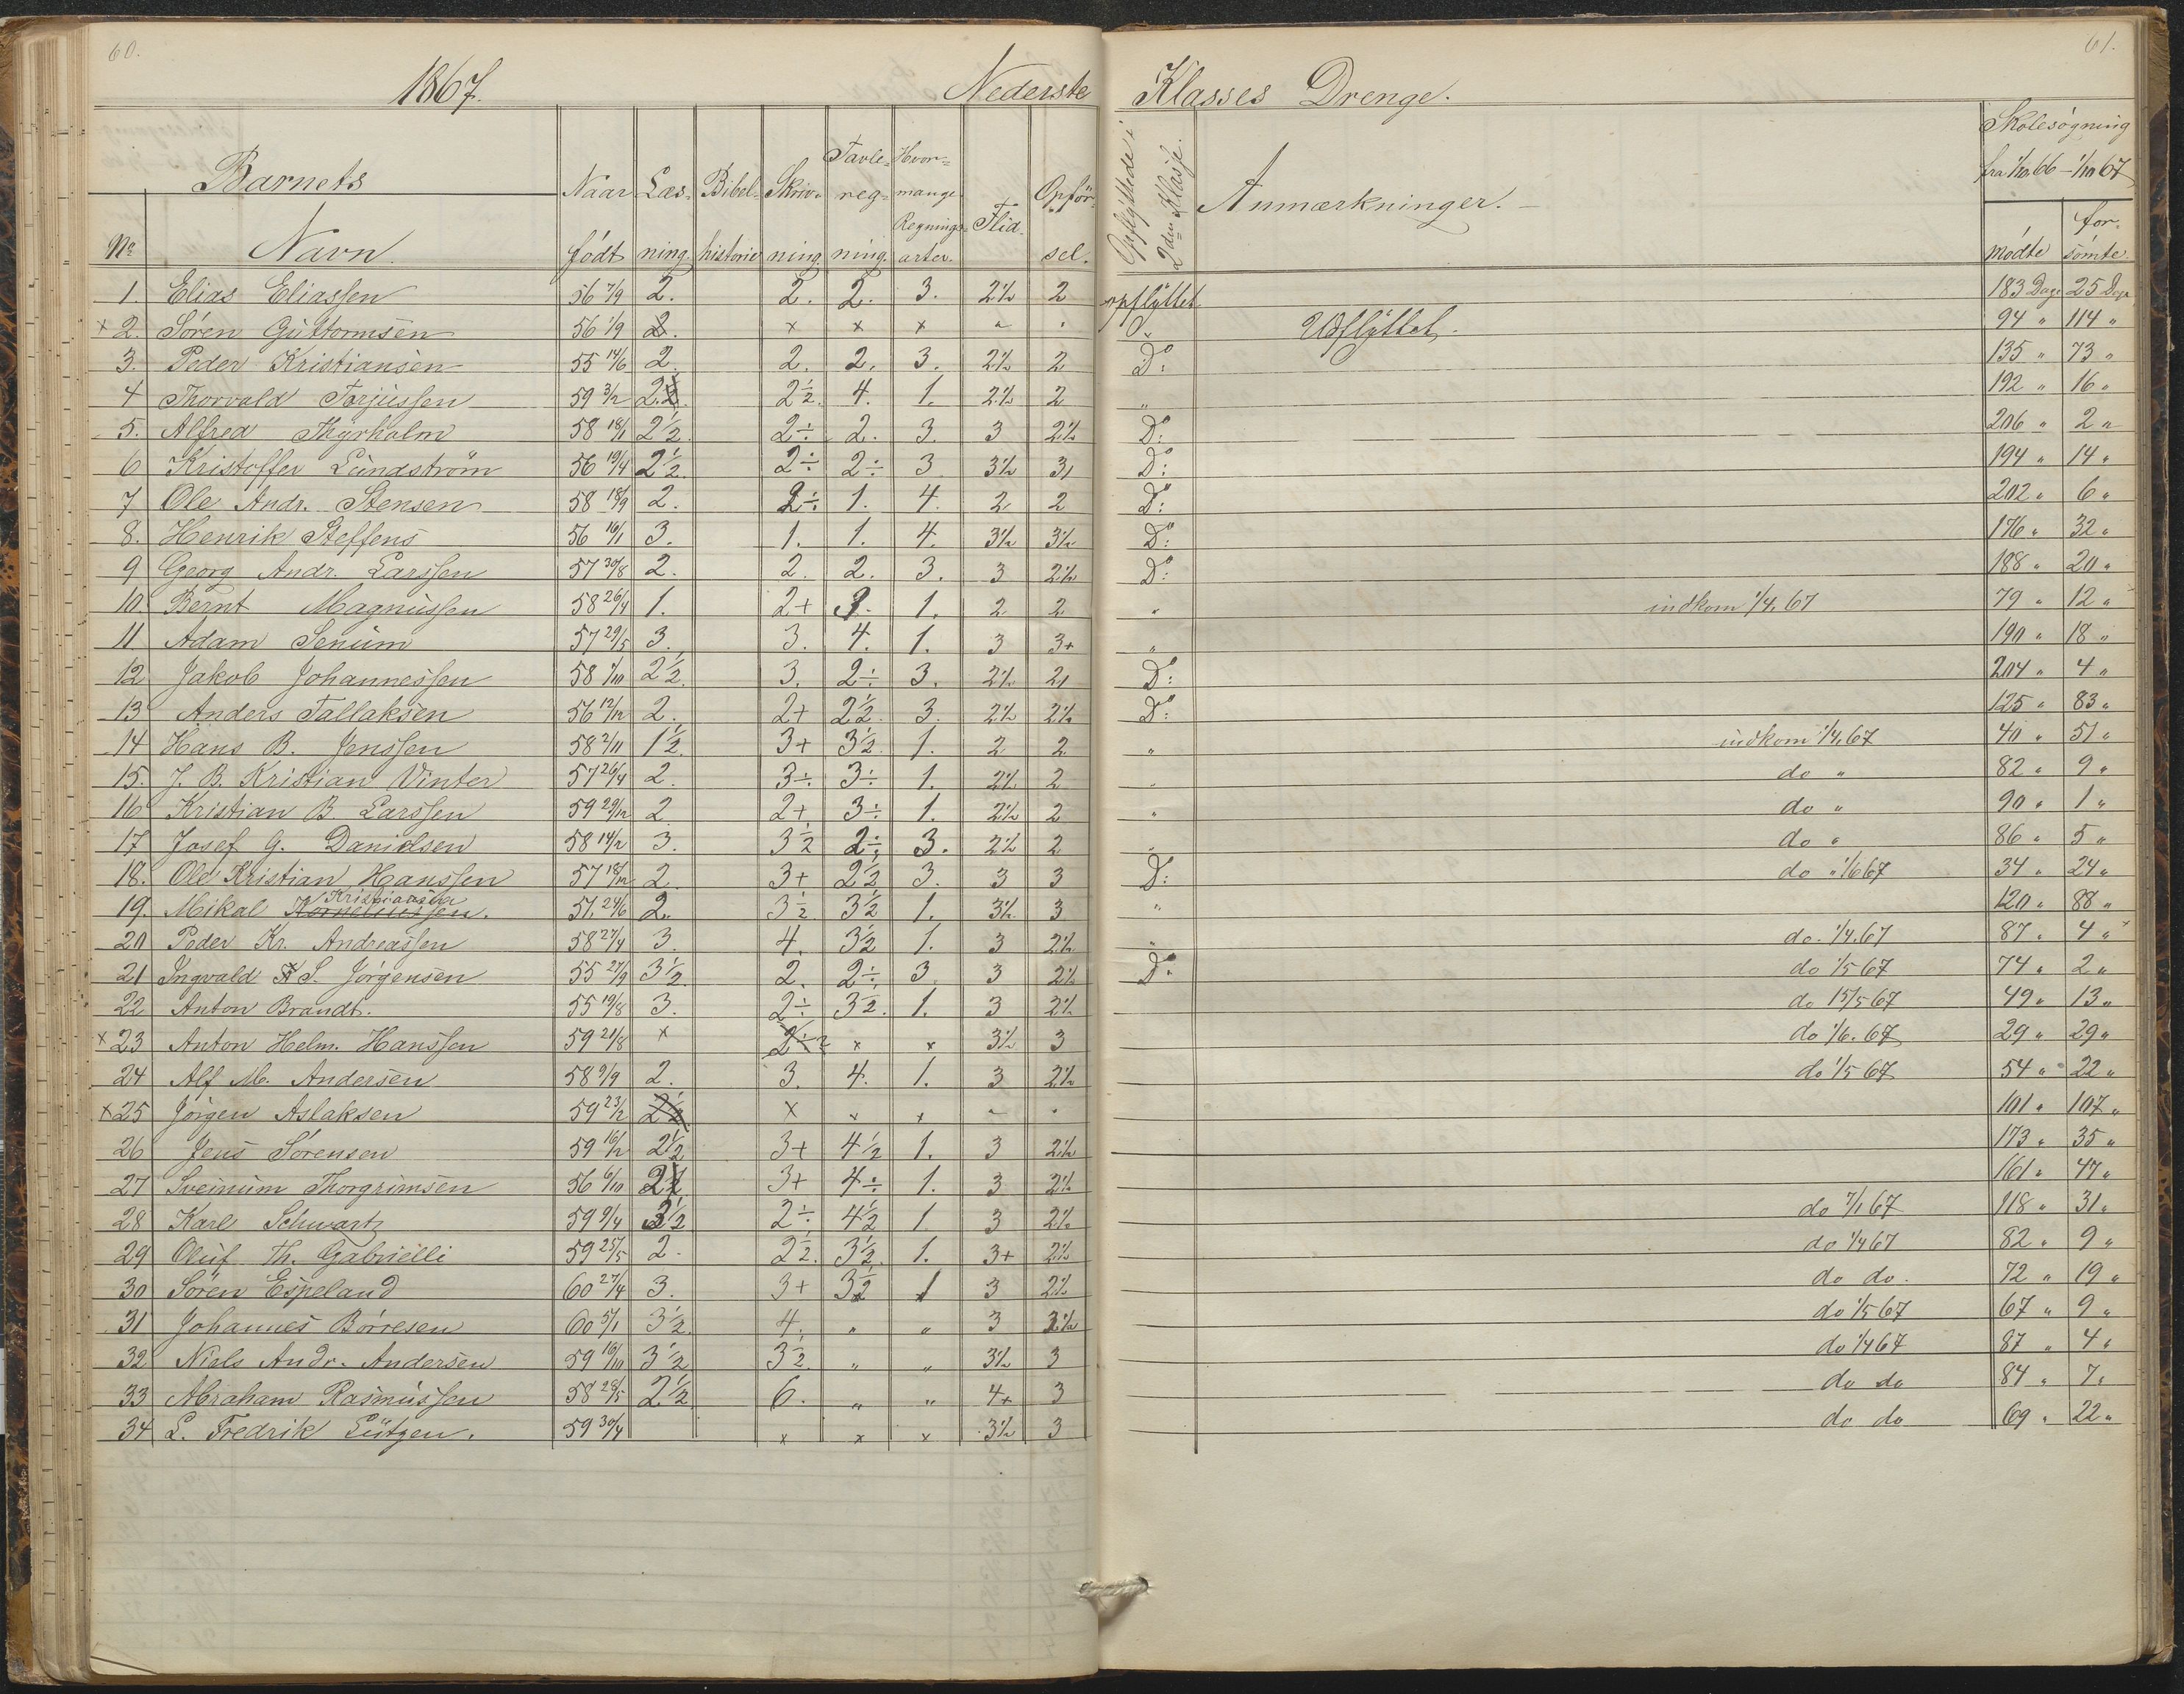 60.
61.
1867.
Nederste Klasses Drenge.
Barnets
No Navn.
Naar født
Læs-ning.
Bibel-historie
Skriv-ning.
Tavle-reg-ning.
Hvor-mange Regnings-arter.
Flid.
Opför-sel.
Opflyttede i 2den Klasse.
Anmærkninger.
Skolesøgning
fra 1/10 66 - 1/10 67
mødte
for-sømte
1. Elias Eliassen 56 7/9 2. 2. 2. 3. 2 1/2 2 opflyttet 183 Dage 25 Dage
x 2. Sören Guttormsen 56 1/9 2. x x x " " " Udflyttet. 94 " 114 "
3. Peder Kristiansen 55 14/6 2 2. 2. 3. 2 1/2 2 Do: 135 " 73 "
4 Thorvald Tarjussen 59 3/12 2. 2 1/2. 4. 1. 2 1/2 2 " 192 " 16 "
5. Alfred Thyrholm 58 18/1 2 1/2 2÷ 2. 3. 3 2 1/2 Do: 206 " 2 "
6 Kristoffer Lundström 56 19/4 2 1/2. 2÷ 2÷ 3 3 1/2 3 Do: 194 " 14 "
7 Ole Andr. Stensen 58 18/9 2. 2÷ 1. 4. 2 2 Do: 202 " 6 "
8. Henrik Steffens 56 16/1 3. 1. 1. 4. 3 1/2 3 1/2 Do: 176 " 32 "
9 Georg Andr. Larssen 57 30/8 2. 2. 2. 3. 3 2 1/2 Do: 188 " 20 "
10. Bernt Magnussen 58 26/4 1. 2+ 3. 1. 2 2 " indkom 1/4. 67 79 " 12 "
11. Adam Senum 57 29/5 3. 3. 4. 1. 3 3+ " 190 " 18 "
12 Jakob Johannessen 58 1/10 2 1/2. 3. 2÷ 3. 2 1/2 2 Do: 204 " 4 "
13 Anders Tallaksen 56 12/12 2. 2+ 2 1/2. 3. 2 1/2 2 1/2 Do: 125 " 83 "
14 Hans B. Jenssen 58 2/11 1 1/2. 3+ 3 1/2. 1. 2 2 " indkom 1/4. 67 40 " 51 "
15. J. B. Kristian Vinter 57 26/4 2. 3÷ 3÷ 1. 2 1/2 2 " do " 82 " 9 "
16 Kristian B Larssen 59 29/12 2. 2+ 3÷ 1. 2 1/2 2 " do " 90 " 1 "
17 Josef G. Danielsen 58 14/2 3. 3 1/2 2÷ 3. 2 1/2 2 " do " 86 " 5 "
18. Ole Kristian Hanssen 57 18/12 2. 3+ 2 1/2 3. 3 3 Do: do " 1/6 67 34 " 24 "
19. Mikal Korneliussen. Kristiansen 57. 24/6 2. 3 1/2 3 1/2 1. 3 1/2 3 " 120 " 88 "
20 Peder Kr. Andreassen 58 27/4 3. 4. 3 1/2 1. 3 2 1/2 " do. 1/4. 67 87 " 4 "
21 Ingvald S. Jörgensen 55 27/9 3 1/2. 2. 2÷ 3 3 2 1/2 Do: do 1/5 67 74 " 2 "
22 Anton Brandt. 55 19/8 3. 2÷ 3 1/2. 1. 3 2 1/2 do 15/5 67 49 " 13 "
x 23 Anton Helm. Hanssen 59 21/8 x 2÷ x x 3 1/2 3 do 1/6. 67 29 " 29 "
24 Alf M. Andersen 58 9/9 2. 3. 4. 1. 3 2 1/2 do 1/5 67 54 " 22 "
x 25 Jörgen Aslaksen 59 23/2 2 1/2 x x x " " 101 " 107 "
26 Jens Sörensen 59 16/2 2 1/2 3+ 4 1/2 1. 3 2 1/2 173 " 35 "
27 Sveinum Thorgrimsen 56 6/10 2 3+ 4÷ 1. 3 2 1/2 161 " 47 "
28 Karl Schwartz 59 9/4 3 1/2 2÷ 4 1/2 1 3 2 1/2 do 7/1 67 118 " 31 "
29 Oluf Th. Gabrielli 59 25/5 2. 2 1/2. 3 1/2. 1. 3+ 2 1/2 do 1/4 67 82 " 9 "
30 Sören Espeland 60 27/4 3. 3+ 3 1/2 1 3 2 1/2 do do. 72 " 19 "
31 Johannes Börresen 60 5/1 3 1/2. 4. " " 3 2 1/2 do 1/5 67 67 " 9 "
32 Niels Andr. Andersen 59 16/10 3 1/2 3 1/2. " " 3 1/2 3 do 1/4 67 87 " 4 "
33 Abraham Rasmussen 58 28/5 2 1/2 6. " " 4+ 3 do do 84 " 7 "
34 L. Fredrik Lützen. 59 30/4 x x x 3 1/2 3 do do 69 " 22 "